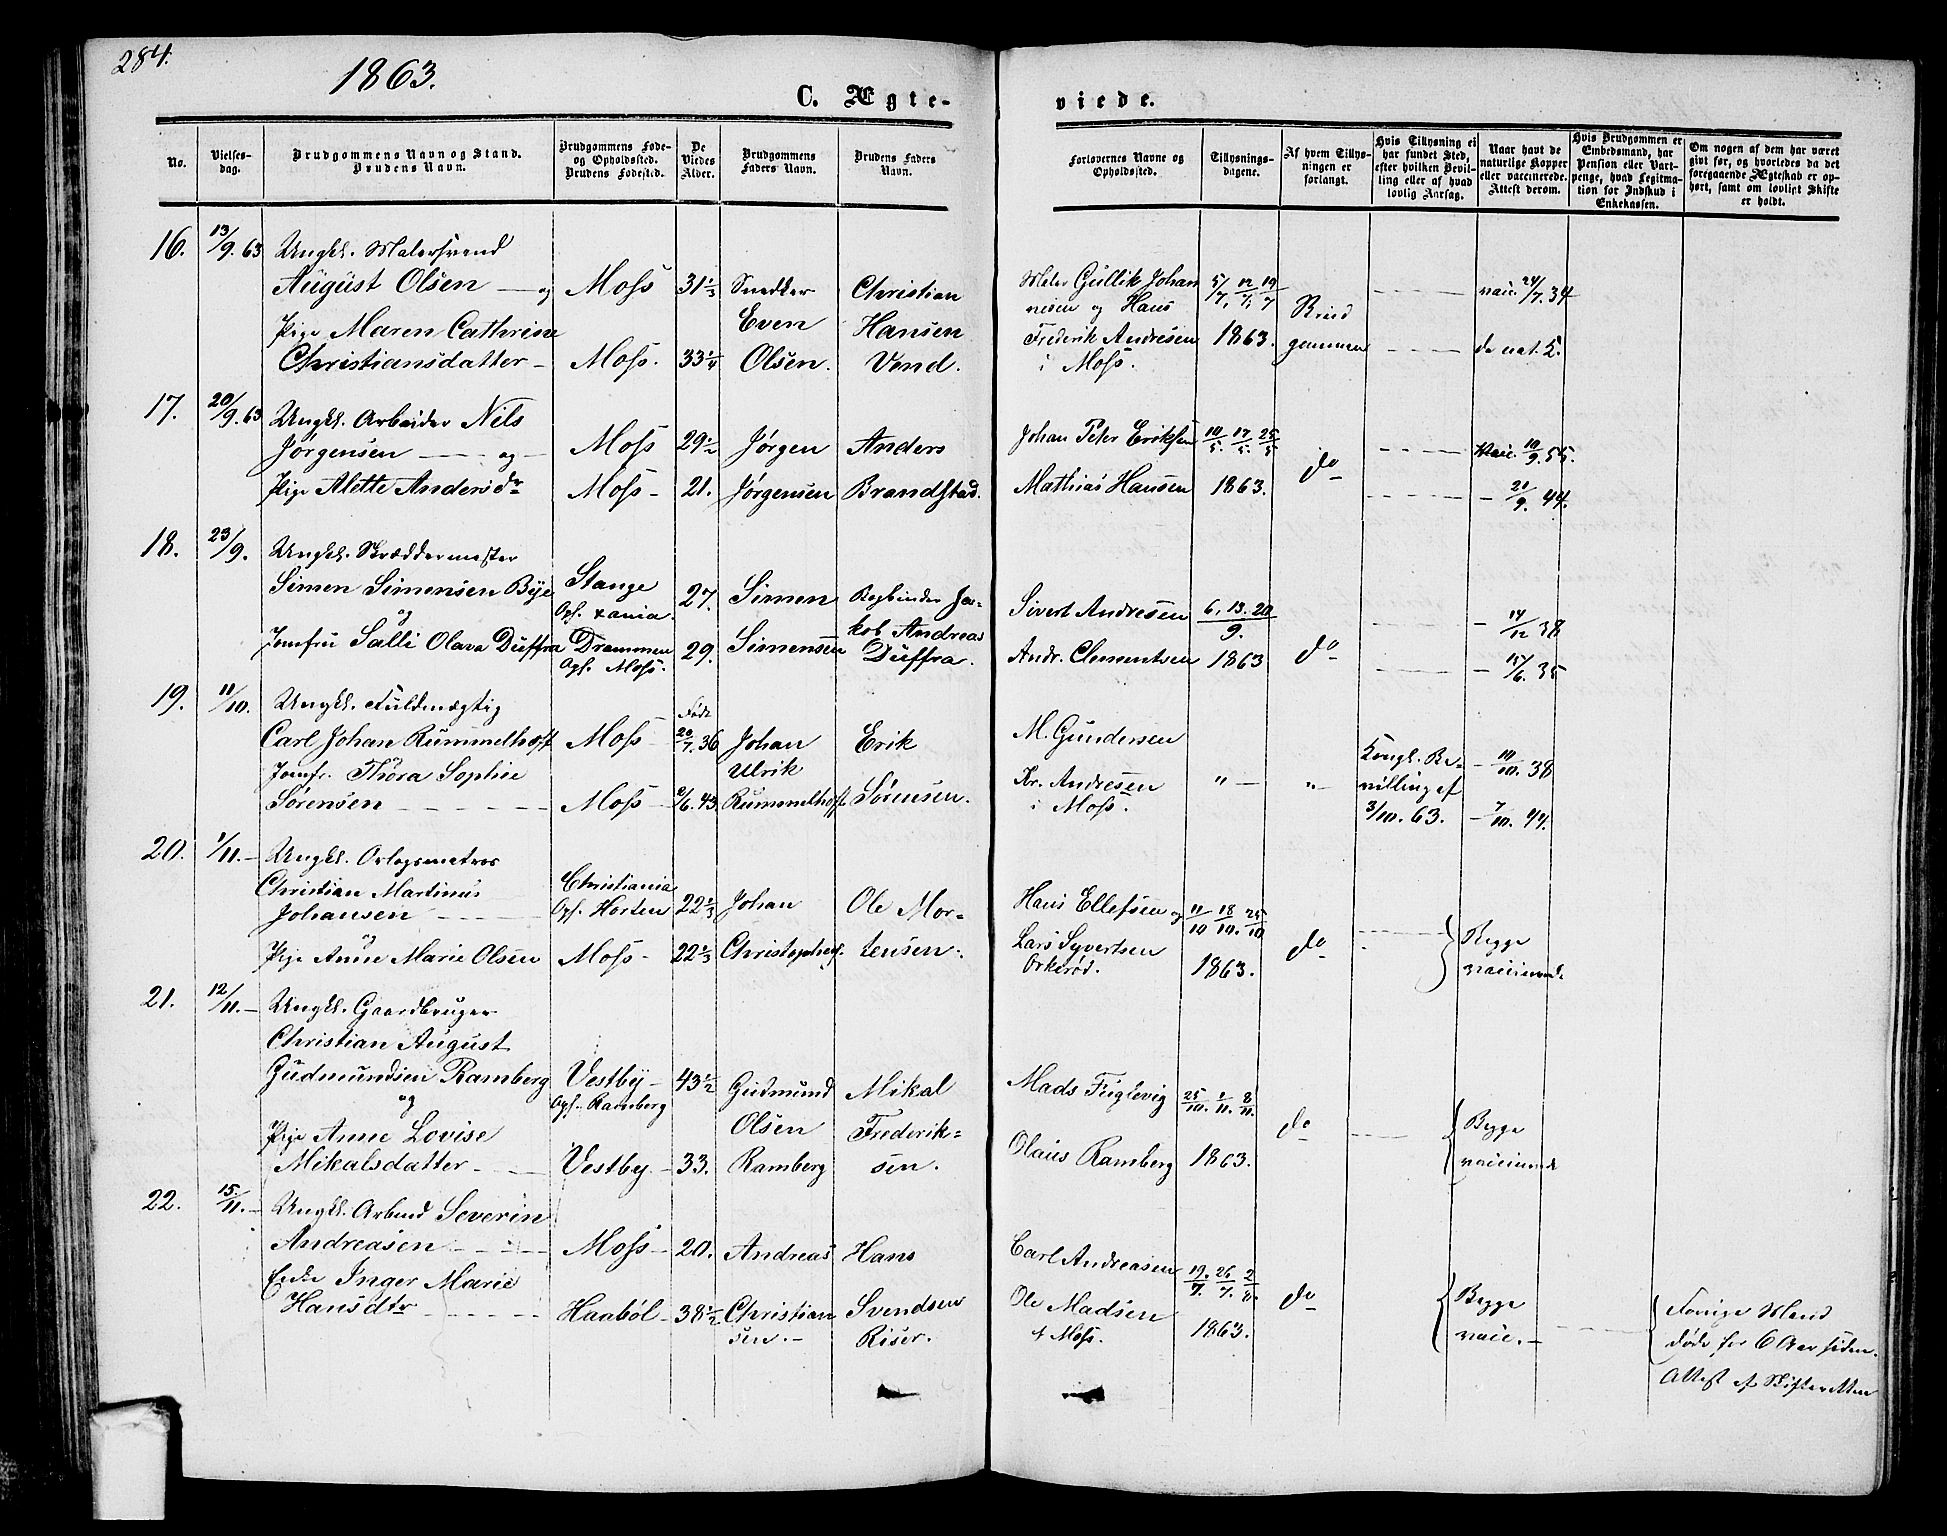 284.
1863.
C. Ægte-
viede.
No.
Vielses-
dag.
Brudgommens Navn og Stand.
Brudens Navn.
Brudgommens Føde-
og Opholdssted.
Brudens Fødested.
De
Viedes
Alder.
Brudgommens
Faders Navn.
Brudens Faders
Navn.
Forlovernes Navne og
Opholdssted.
Tillysnings-
dagene.
Af hvem Tillys-
ningen er
forlangt.
Hvis Tillysning ei
har fundet Sted,
efter hvilken Bevil-
ling eller af hvad
lovlig Aarsag.
Naar havt de
naturlige Kopper
eller vaccinerede.
Attest derom.
Hvis Brudgommen er
Embedsmand, har
Pension eller Vart-
penge, hvad Legitma-
tion for Indskud i
Enkekassen.
Om nogen af dem har været
gift før, og hvorledes da det
foregaaende Ægteskab er op-
hørt, samt om lovligt Skifte
er holdt.
16. 13/9. 63 Ungkl. Malersvend
August Olsen — og Moss 31 1/3 Snedker Christian
Pige Maren Cathrine Even Hansen
Christiansdatter — Moss. 33 1/4 Olsen. Vend.
Maler Gullik Johan 5/7. 12/7. 19/7 vacc. 24/7. 34
nesen og Hans Brud
Frederik Andresen 1863. gommen do nat. 2.
i Moss.
17. 20/9. 63 Ungkl. Arbeider Nils
Jørgensen — og Moss 29 1/2 Jørgen Anders
Pige Alette Andersdr Moss — 21. Jørgensen Brandstad.
Johan Peter Eriksen 10/5. 17/5. 25/5 do vacc. 10/9. 55.
Mathias Hansen 1863. — 20/9. 44.
18. 23/9. Ungkl. Skræddermester
Simen Simensen Bye Stange 27. Simen Bogbinder Ja-
og Oph. Xania. kob Andreas
Jomfru Salli Olava Duffra Drammen 29. Simensen Duffra.
Oph. Moss.
Sivert Andresen 6. 13. 20/9. — 14/12 38
Andr. Clementsen 1863 do — 15/6. 35
19. 11/10. Ungkl. Fuldmægtig Født
Carl Johan Rummelhoff Moss — 20/7. 36 Johan Erik
Jomfr. Thora Sophie Ulrik
Sørensen — Moss — 6. 43. Rummelhoff Sørensen.
M. Gundersen
Kr. Andresen " — " — Kongl. Be- — 10/10. 38
i Moss. villing af
3/10. 63. — 7/10. 44.
20. 1/11. — Ungkl. Orlogsmatros
Christian Martinus Christiania
Johansen — Oph. Horten 22 1/3 Johan Ole Mor-
og
Pige Anne Marie Olsen Moss — 22 2/3 Christophers. tensen.
Hans Ellefsen og 11/10 18/10. 25/10 Begge
Lars Syvertsen do vaccinerede.
Orkerød. 1863.
21. 12/11. — Ungkl. Gaardbruger
Christian August
Gudmundsen Ramberg Vestby — 43 1/2 Gudmund Mikal
og Oph. Ramberg
Pige Anne Lovise Olsen Frederik-
Mikalsdatter — Vestby — 33. Ramberg sen.
Mads Fuglevig 25/10. 1/11. 8/11. do Begge
Olaus Ramberg 1863. vaccinerede
22. 15/11. — Ungkl. Arbeid Severin
Andreasen — Moss — 20. Andreas Hans
Enke Inger Marie
Hansdtr — Haabøl — 38 1/2 Christian Svendsen
sen. — Riser.
Carl Andreasen 19/7. 26/7. 2/8. do Begge
Ole Madsen vacc. —
i Moss. 1863.
Forrige Mand
døde for 6 Aar siden.
Attest af Skifteretten